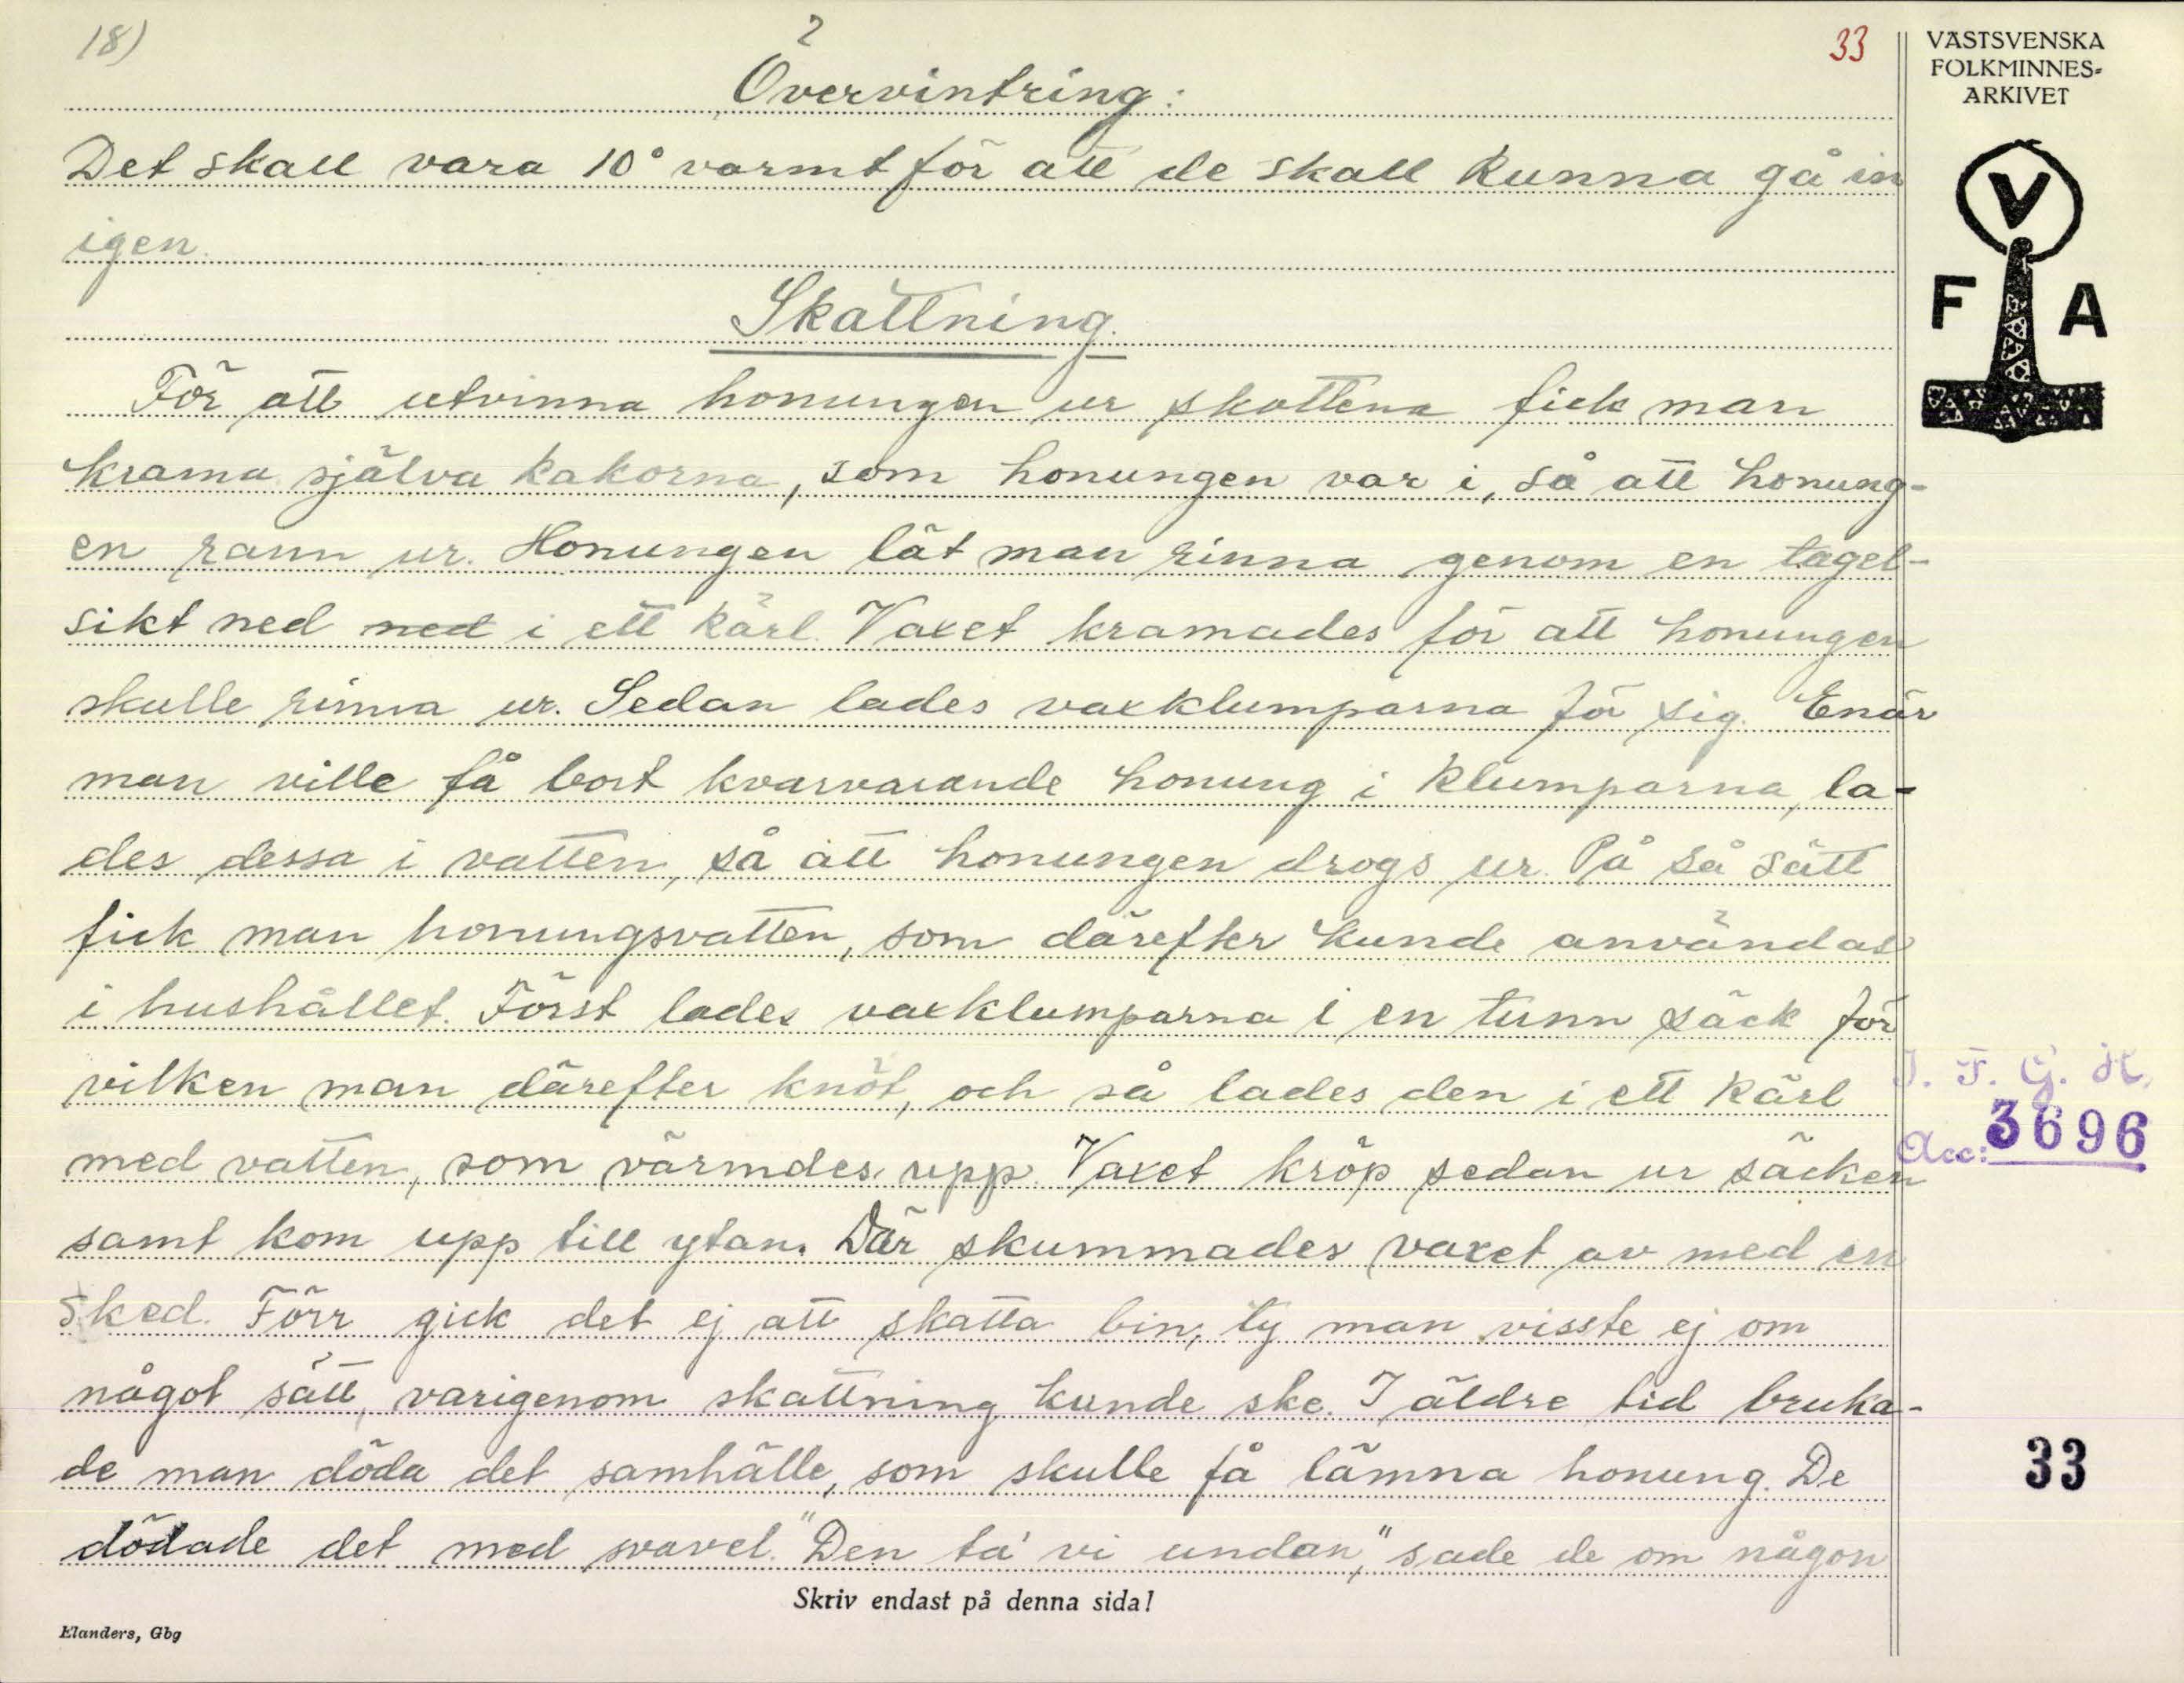 18)
33
VÄSTSVENSKA
FOLKMINNES-
ARKIVET
Övervintring:
Det skall vara 10° varmt för att de skall kunna gå in
igen.
V
F A
Skattning.
För att utvinna honungen ur skattena fick man
krama själva kakorna, som honungen var i, så att honung-
en rann ur. Honungen lät man rinna genom en tagel-
sikt ned ned i ett kärl. Vaxet kramades för att honungen
skulle rinna ur. Sedan lades vaxklumparna för sig. Enär
man ville få bort kvarvarande honung i klumparna, la-
des dessa i vatten, så att honungen drogs ur. På så sätt
fick man honungsvatten, som därefter kunde användas
i hushållet. Först lades vaxklumparna i en tunn säck för
vilken man därefter knöt, och så lades den i ett kärl
I. F. G. H.
Acc: 3696
med vatten, som värmdes upp. Vaxet kröp sedan ur säcken
samt kom upp till ytan. Där skummades vaxet av med en
sked. Förr gick det ej att skatta bin, ty man visste ej om
något sätt, varigenom skattning kunde ske. I äldre tid bruka-
de man döda det samhälle, som skulle få lämna honung. De
33
dödade det med svavel. "Den ta' vi undan," sade de om någon
Skriv endast på denna sida!
Elanders, Gbg